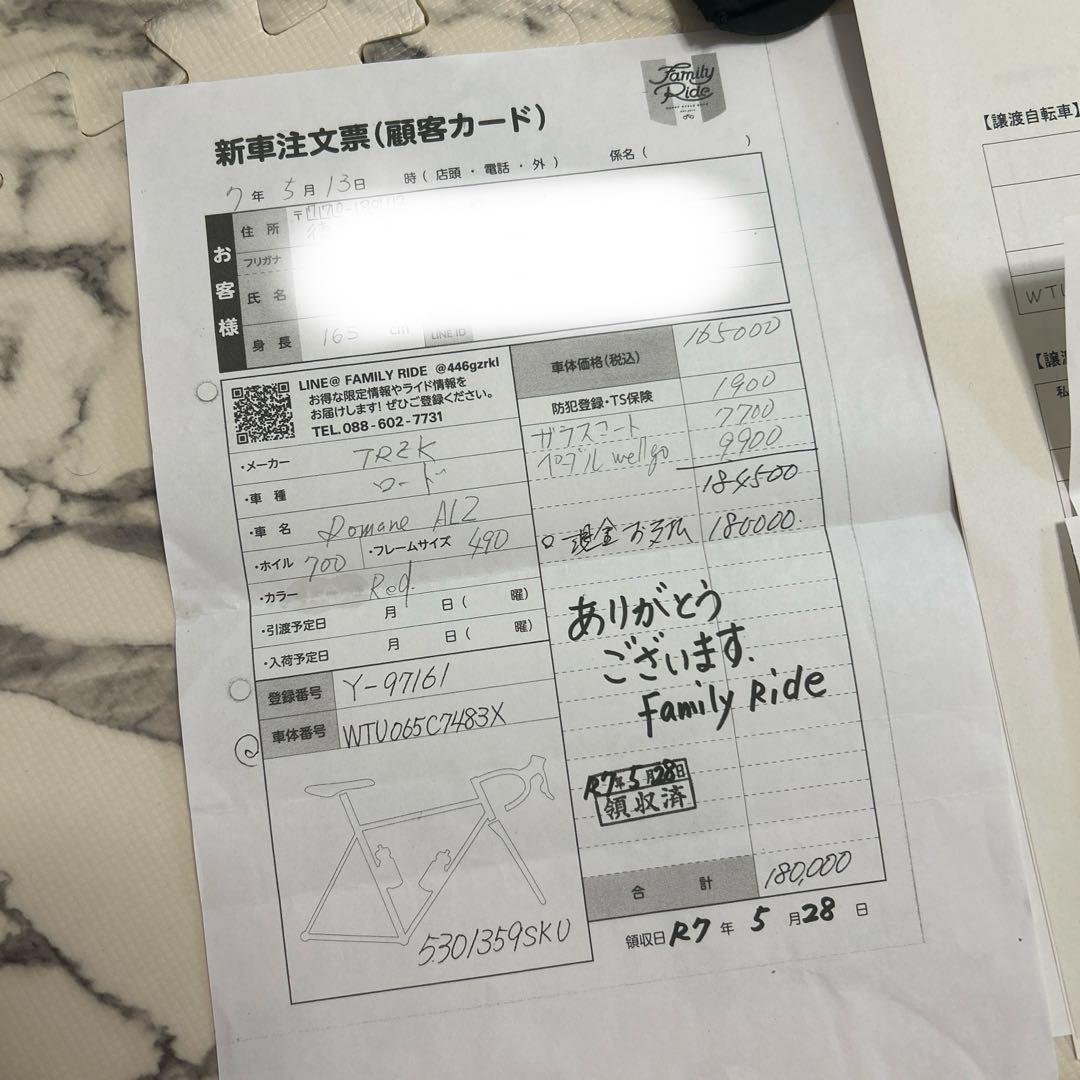 Family Ride
新車注文票(顧客カード)
7年 5月 13日 時( 店頭 ・ 電話 ・ 外 ) 係名( )
お客様
住所 〒
フリガナ
氏名
身長 163 cm LINE ID
LINE@ FAMILY RIDE @446gzrkl
お得な限定情報やライド情報を
お届けします! ぜひご登録ください。
TEL.088-602-7731
・メーカー TREK
・車種 ロード
・車名 Domane AL2
・ホイル 700 ・フレームサイズ 490
・カラー Red
・引渡予定日 月 日( 曜)
・入荷予定日 月 日( 曜)
登録番号 Y-97161
車体番号 WTU065C7483X
5301359SKU
車体価格(税込) 165000
防犯登録・TS保険 1900
ガラスコート 7700
ペダル wellgo 9900
184500
現金お支払 180000.
ありがとう
ございます.
Family Ride
R7年5月28日
領収済
合計 180,000
領収日 R7年 5月28日
【譲渡自転車】
WTU
【譲
私